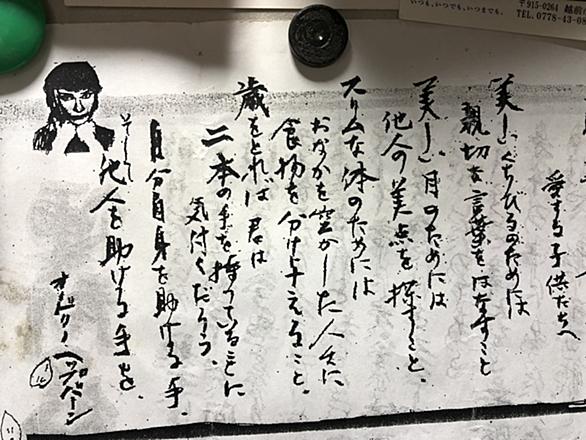 いつも、いつでも、いつまでも。
〒915-0264 越前
TEL.0778-43-08
愛する子供たちへ
美しいくちびるのためには
親切な言葉をはなすこと
美しい目のためには
他人の美点を探すこと、
スリムな体のためには
おなかを空かした人々に
食物を分け与えること、
歳をとれば君は
二本の手を持っていることに
気付くだろう、
自分自身を助ける手、
そして
他人を助ける手を、
オードリー ヘップバーン